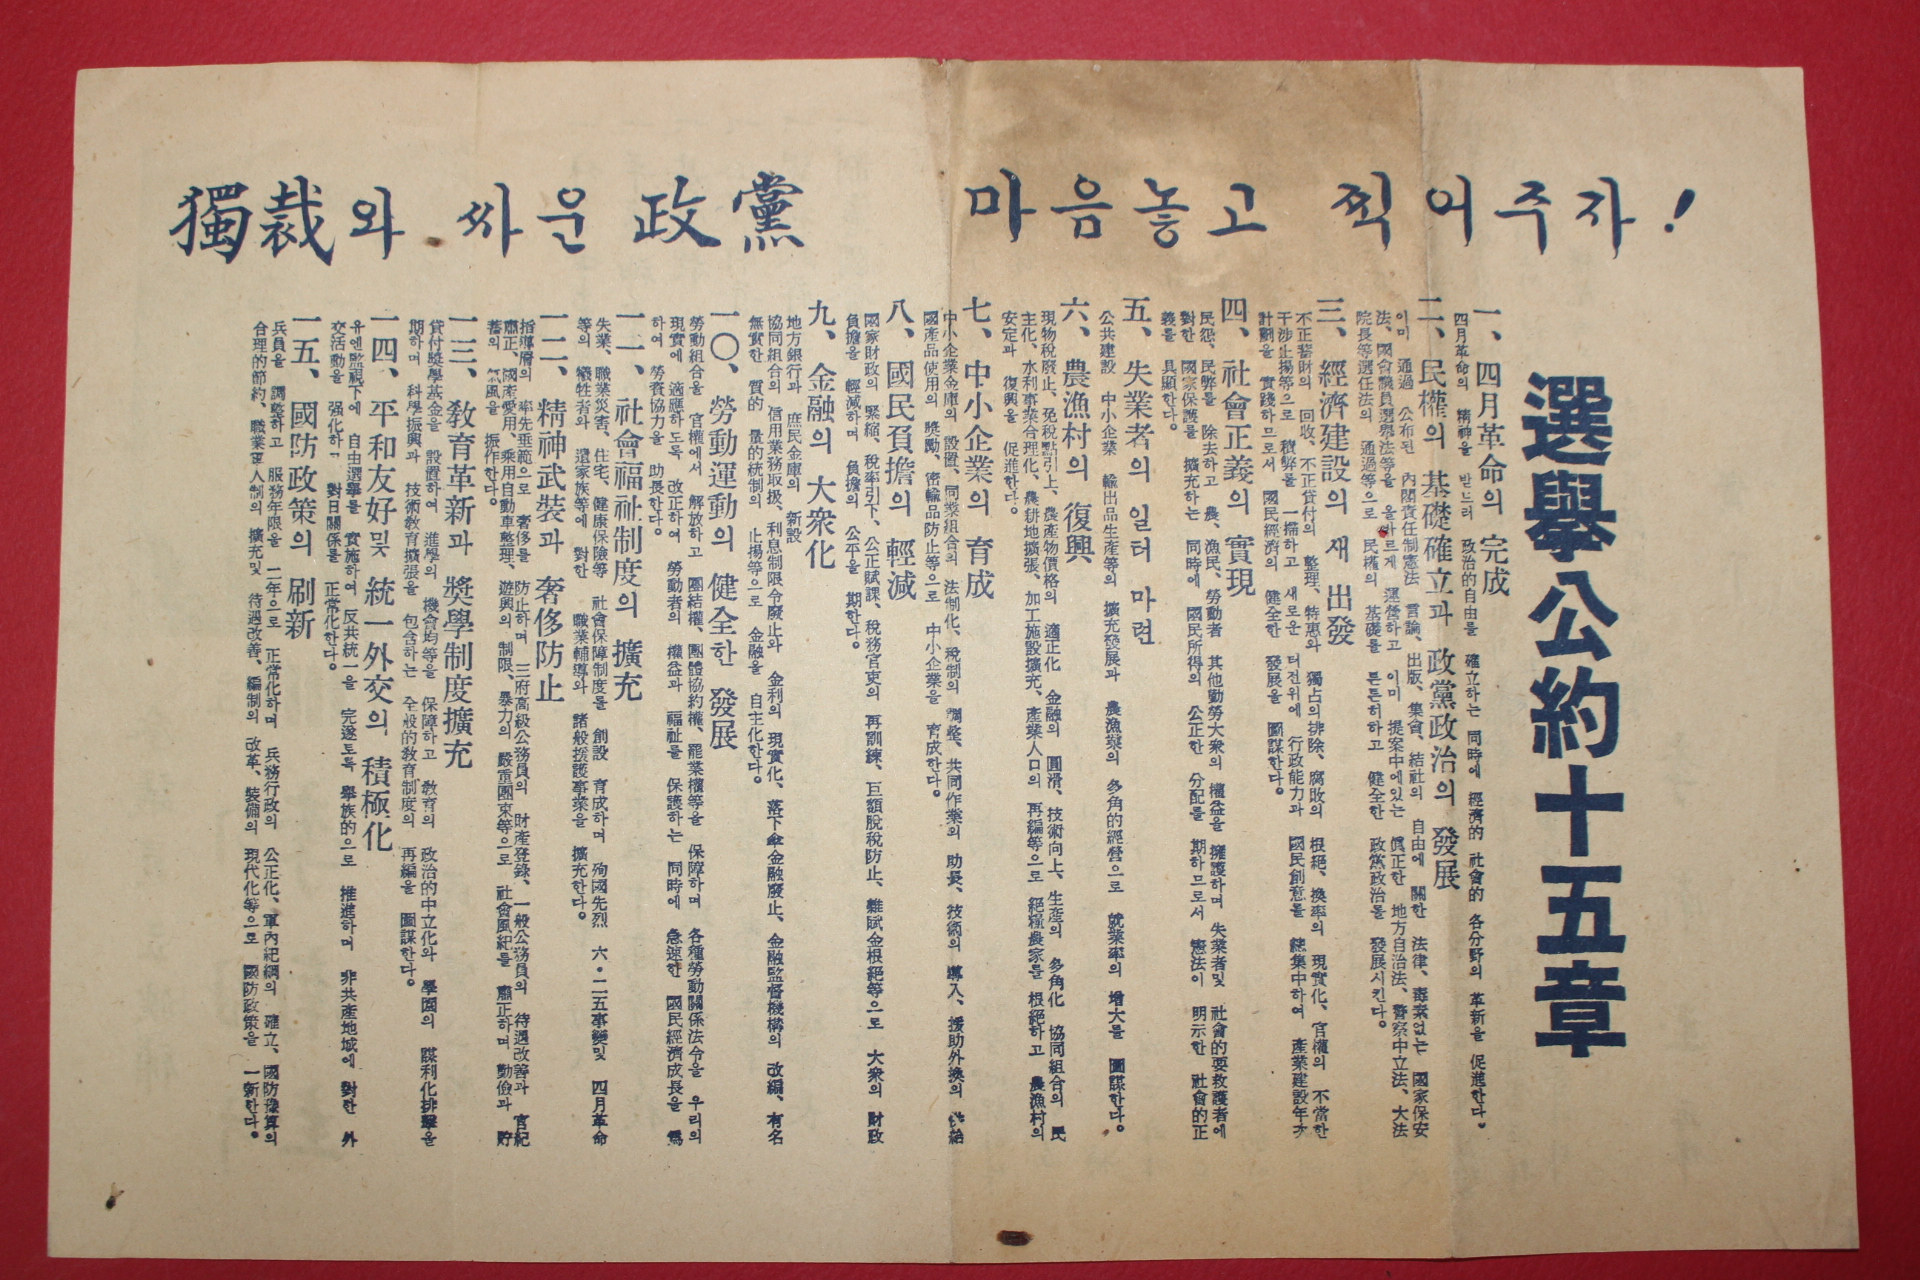 獨裁와 싸운 政黨 마음놓고 찍어주자!
選擧公約十五章
一、四月革命의 完成
四月革命의 精神을 받드러 政治的自由를 確立하는 同時에 經濟的 社會的 各分野의 革新을 促進한다。
二、民權의 基礎確立과 政黨政治의 發展
이미 通過 公布된 內閣責任制憲法 言論、出版、集會、結社의 自由에 關한 法律、毒素없는 國家保安
法、國會議員選擧法等을 올바르게 運營하고 이미 提案中에있는 眞正한 地方自治法、警察中立法、大法
院長等選任法의 通過等으로 民權의 基礎를 튼튼히하고 健全한 政黨政治를 發展시킨다。
三、經濟建設의 새 出發
不正蓄財의 回收、不正貸付의 整理、特惠와 獨占의排除、腐敗의 根絕、換率의 現實化、官權의 不當한
干涉止揚等으로 積弊를 一掃하고 새로운 터전위에 行政能力과 國民創意를 總集中하여 産業建設年次
計劃을 實踐하므로서 國民經濟의 健全한 發展을 圖謀한다。
四、社會正義의 實現
民怨、民弊를 除去하고 農、漁民、勞動者 其他勤勞大衆의 權益을 擁護하며 失業者및 社會的要救護者에
對한 國家保護를 擴充하는 同時에 國民所得의 公正한 分配를 期하므로서 憲法이 明示한 社會的正
義를 具顯한다。
五、失業者의 일터 마련
公共建設 中小企業 輸出品生産等의 擴充發展과 農漁村의 多角的經營으로 就業率의 增大를 圖謀한다。
六、農漁村의 復興
現物稅廢止、免稅點引上、農産物價格의 適正化 金融의 圓滑、技術向上、生産의 多角化 協同組合의 民
主化、水利事業合理化、農耕地擴張、加工施設擴充、産業人口의 再編等으로 絕糧農家를 根絕하고 農漁村의
安定과 復興을 促進한다。
七、中小企業의 育成
中小企業金庫의 設置、同業組合의 法制化、稅制의 調整、共同作業의 助長、技術의 導入、援助外換의 供給
國産品使用의 奬勵、密輸品防止等으로 中小企業을 育成한다。
八、國民負擔의 輕減
國家財政의 緊縮、稅率引下、公正賦課、稅務官吏의 再訓練、巨額脫稅防止、雜賦金根絕等으로 大衆의 財政
負擔을 輕減하며 負擔의 公平을 期한다。
九、金融의 大衆化
地方銀行과 庶民金庫의 新設
協同組合의 信用業務取扱、利息制限令廢止와 金利의 現實化、落下傘金融廢止、金融監督機構의 改編、有名
無實한 質的 量的統制의 止揚等으로 金融을 自主化한다。
一〇、勞動運動의 健全한 發展
勞動組合을 官權에서 解放하고 團結權、團體協約權、罷業權等을 保障하며 各種勞動關係法令을 우리의
現實에 適應하도록 改正하여 勞動者의 權益과 福祉를 保護하는 同時에 急速한 國民經濟成長을 爲
하여 勞資協力을 助長한다。
一一、社會福祉制度의 擴充
失業、職業災害、住宅、健康保險等 社會保障制度를 創設 育成하며 殉國先烈 六・二五事變및 四月革命
等의 犧牲者와 遺家族等에 對한 職業輔導와 諸般援護事業을 擴充한다。
一二、精神武裝과 奢侈防止
指導層의 率先垂範으로 奢侈를 防止하며 三府高級公務員의 財産登錄、一般公務員의 待遇改善과 官紀
肅正、國産愛用、乘用自動車整理、遊興의 制限、暴力의 嚴重團束等으로 社會風紀를 肅正하며 勤儉과 貯
蓄의 氣風을 振作한다。
一三、敎育革新과 奬學制度擴充
貸付奬學基金을 設置하여 進學의 機會均等을 保障하고 敎育의 政治的中立化와 學園의 謀利化排擊을
期하며 科學振興과 技術敎育擴張을 包含하는 全般的敎育制度의 再編을 圖謀한다。
一四、平和友好및 統一外交의 積極化
유엔監視下에 自由選擧를 實施하여 反共統一을 完遂토록 擧族的으로 推進하며 非共産地域에 對한 外
交活動을 强化하고 對日關係를 正常化한다。
一五、國防政策의 刷新
兵員을 調整하고 服務年限을 二年으로 正常化하며 兵務行政의 公正化、軍內紀綱의 確立、國防豫算의
合理的節約、職業軍人制의 擴充및 待遇改善、編制의 改革、裝備의 現代化等으로 國防政策을 一新한다。